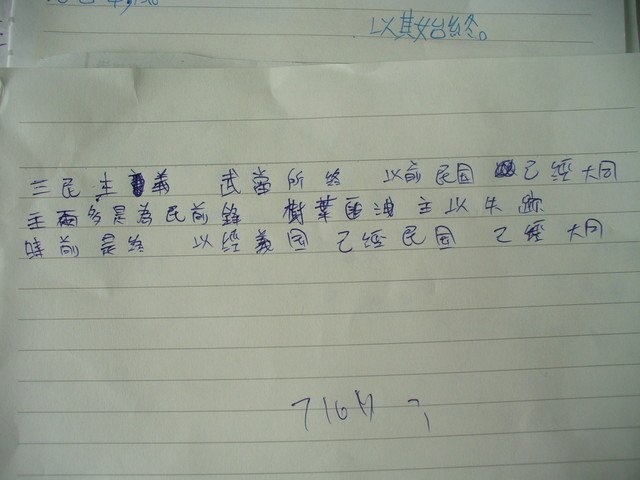 以其始終。
三民主義 武當所終 以前民國 已經大同
主
多是為民前鋒 樹葉
油 主以失
時前是終 以經義國 已經民國 已經大同
716